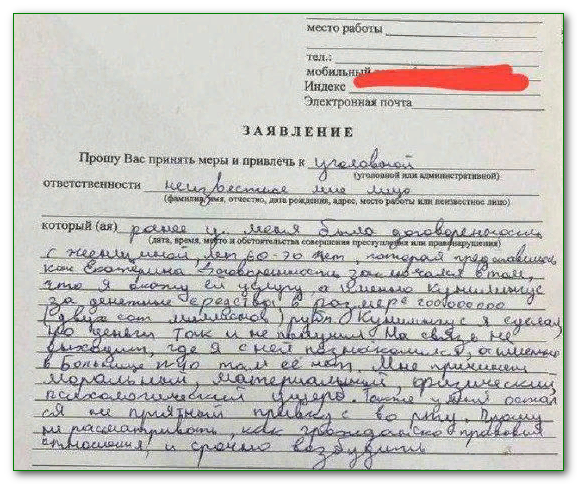 место работы
тел.:
мобильный
Индекс
Электронная почта
ЗАЯВЛЕНИЕ
Прошу Вас принять меры и привлечь к уголовной
(уголовной или административной)
ответственности неизвестное мне лицо
(фамилия, имя, отчество, дата рождения, адрес, место работы или неизвестное лицо)
который (ая) ранее у меня была договоренность
(дата, время, место и обстоятельства совершения преступления или правонарушения)
с женщиной, лет 60-70 лет, которая представилась
как Екатерина Договоренность заключался в том,
что я окажу ей услугу а именно Кунилингус
за денежные средства в размере 200000000
(двух сот милионов) руб. Кунилингус я сделал
но деньги так и не получил На связь не
выходит, где я с ней познакомился, а именно
в больнице то там её нет. Мне причинен
моральный, материальный, физический,
психологический ущерб. Также у меня остал
ся не приятный привкус во рту. Прошу
не рассматривать, как гражданско правовые
отношения, и срочно возбудить